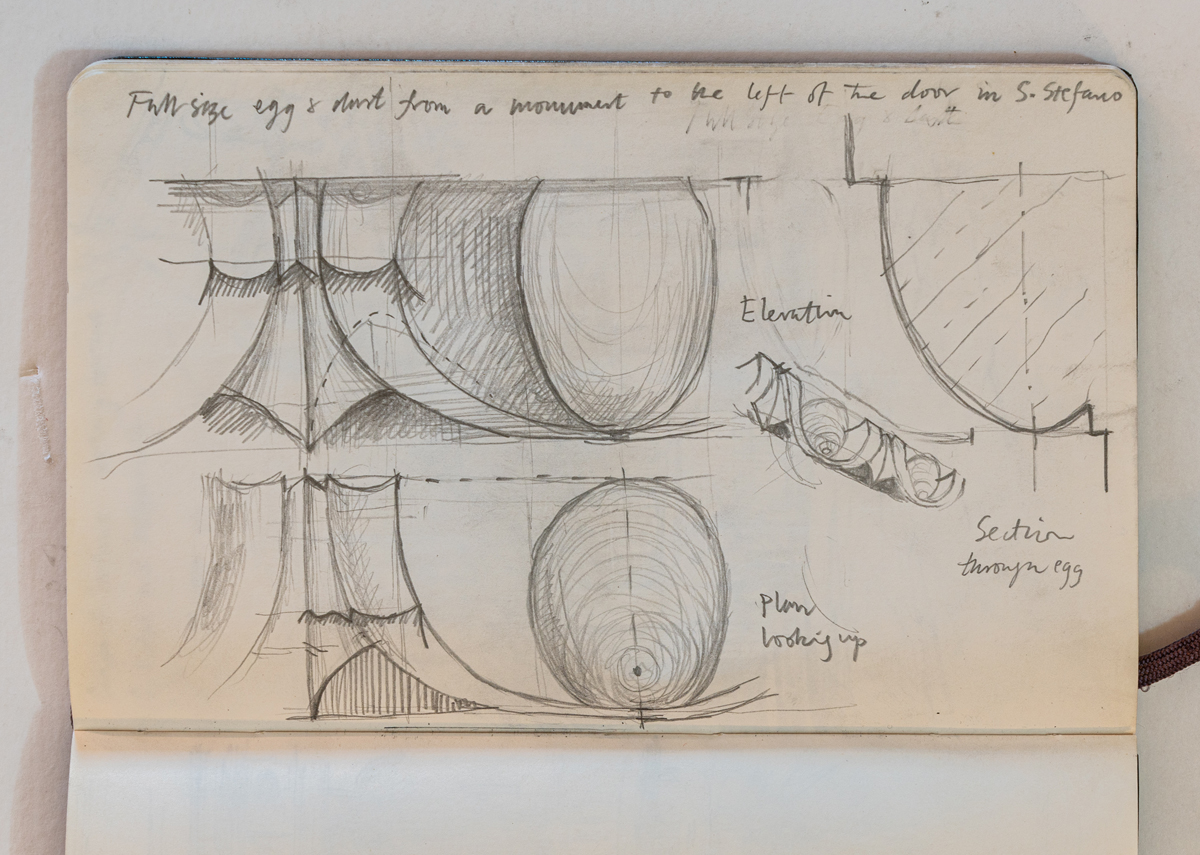 Full size egg & dart from a monument to the left of the door in S. Stefano
Elevation
Section
through egg
Plan
looking up